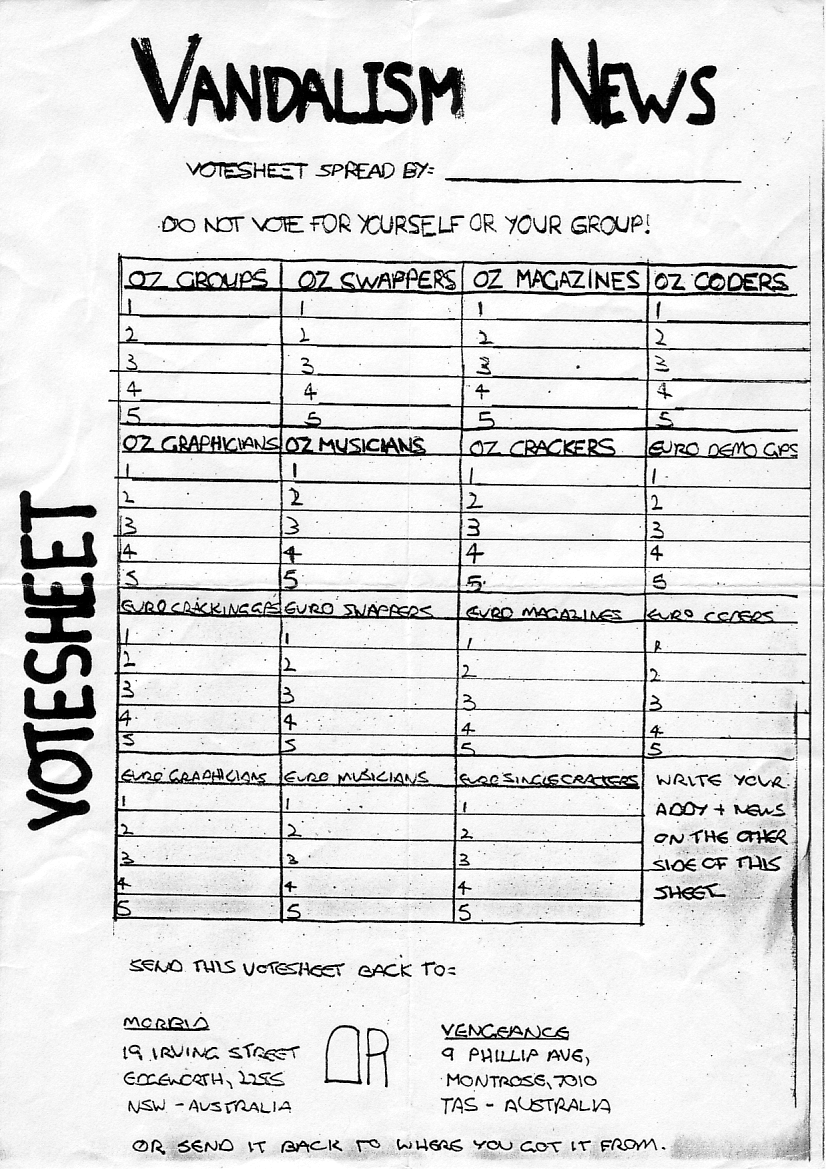 VANDALISM NEWS
VOTESHEET SPREAD BY:
DO NOT VOTE FOR YOURSELF OR YOUR GROUP!
VOTESHEET
OZ GROUPS OZ SWAPPERS OZ MAGAZINES OZ CODERS
1 1 1 1
2 2 2 2
3 3 3 3
4 4 4 4
5 5 5 5
OZ GRAPHICIANS OZ MUSICIANS OZ CRACKERS EURO DEMO GPS
1 1 1 1
2 2 2 2
3 3 3 3
4 4 4 4
5 5 5 5
EURO CRACKING GPS EURO SWAPPERS EURO MAGAZINES EURO CODERS
1 1 1 1
2 2 2 2
3 3 3 3
4 4 4 4
5 5 5 5
EURO GRAPHICIANS EURO MUSICIANS EURO SINGLE CRACKERS
1 1 1
2 2 2
3 3 3
4 4 4
5 5 5
WRITE YOUR
ADDY + NEWS
ON THE OTHER
SIDE OF THIS
SHEET
SEND THIS VOTESHEET BACK TO:
MORBID
19 IRVING STREET
EDGEWORTH, 2285
NSW - AUSTRALIA
OR
VENGEANCE
9 PHILLIP AVE,
MONTROSE, 7010
TAS - AUSTRALIA
OR SEND IT BACK TO WHERE YOU GOT IT FROM.